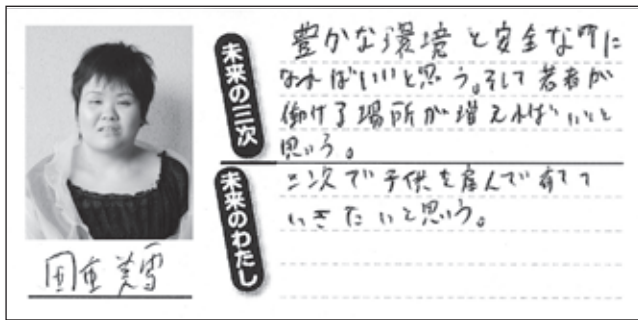 未来の三次
豊かな環境と安全な町に
なればいいと思う。そして若者が
働ける場所が増えればいいと
思う。
未来のわたし
三次で子供を産んで育てて
いきたいと思う。
国重美雪